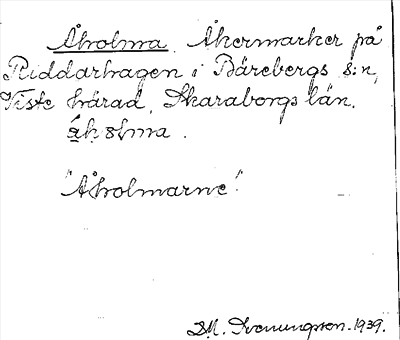 Åholma. Åkermarker på
Riddarhagen i Bärebergs s:n,
Viste härad, Skaraborgs län.
åh8lma.
"Åholmarne"
D.M. Svenungsson. 1939.